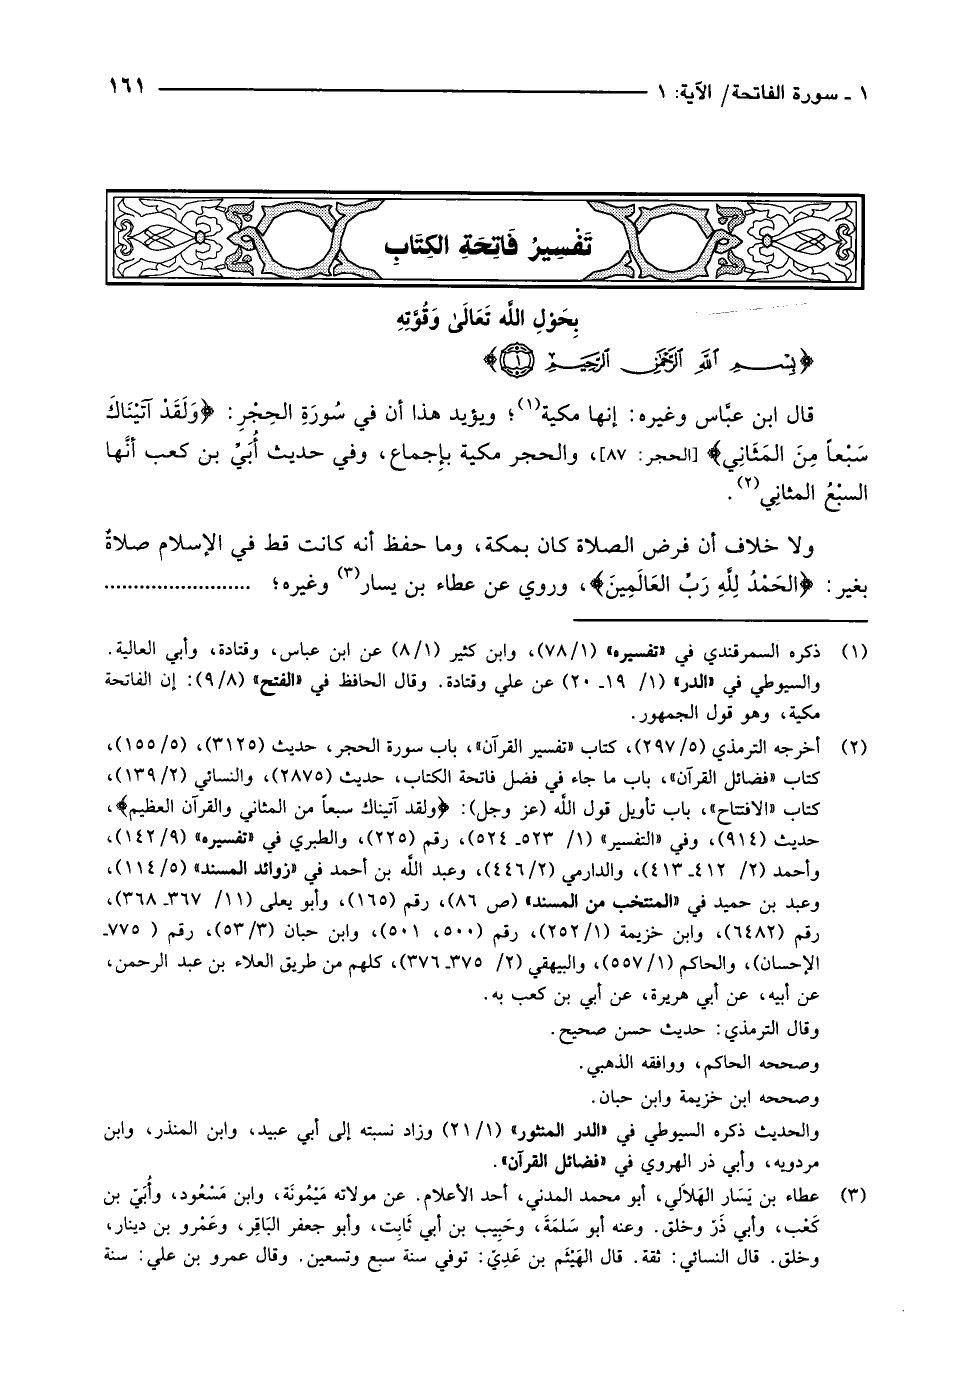 ١ ـ سورة الفاتحة/ الآية: ١ ١٦١
تَفْسِيرُ فَاتِحَةِ الكِتَابِ
بِحَوْلِ اللَّه تَعَالَىٰ وَقُوَّتِهِ
﴿بِسْمِ اللَّهِ الرَّحْمَٰنِ الرَّحِيمِ ١﴾
قال ابن عبَّاس وغيره: إنها مكية(١)؛ ويؤيد هذا أن في سُورَةِ الحِجْرِ: ﴿وَلَقَدْ آتَيْنَاكَ
سَبْعاً مِنَ المَثَانِي﴾ [الحجر: ٨٧]، والحجر مكية بإجماع، وفي حديث أُبَيِّ بن كعب أنَّها
السبْعُ المثاني(٢).
ولا خلاف أن فرض الصلاة كان بمكة، وما حفظ أنه كانت قط في الإسلام صلاةٌ
بغير: ﴿الحَمْدُ لِلَّهِ رَبِّ العَالَمِينَ﴾، وروي عن عطاء بن يسار(٣) وغيره؛ .........................
(١) ذكره السمرقندي في «تفسيره» (٧٨/١)، وابن كثير (٨/١) عن ابن عباس، وقتادة، وأبي العالية.
والسيوطي في «الدر» (١/ ١٩ـ ٢٠) عن علي وقتادة. وقال الحافظ في «الفتح» (٩/٨): إن الفاتحة
مكية، وهو قول الجمهور.
(٢) أخرجه الترمذي (٢٩٧/٥)، كتاب «تفسير القرآن»، باب سورة الحجر، حديث (٣١٢٥)، (١٥٥/٥)،
كتاب «فضائل القرآن»، باب ما جاء في فضل فاتحة الكتاب، حديث (٢٨٧٥)، والنسائي (١٣٩/٢)،
كتاب «الافتتاح»، باب تأويل قول اللَّه (عز وجل): ﴿ولقد آتيناك سبعاً من المثاني والقرآن العظيم﴾،
حديث (٩١٤)، وفي «التفسير» (١/ ٥٢٣ـ ٥٢٤)، رقم (٢٢٥)، والطبري في «تفسيره» (١٤٢/٩)،
وأحمد (٢/ ٤١٢ـ ٤١٣)، والدارمي (٤٤٦/٢)، وعبد اللَّه بن أحمد في «زوائد المسند» (١١٤/٥)،
وعبد بن حميد في «المنتخب من المسند» (ص ٨٦)، رقم (١٦٥)، وأبو يعلى (١١/ ٣٦٧ـ ٣٦٨)،
رقم (٦٤٨٢)، وابن خزيمة (٢٥٢/١)، رقم (٥٠٠، ٥٠١)، وابن حبان (٥٣/٣)، رقم ( ٧٧٥ـ
الإحسان)، والحاكم (٥٥٧/١)، والبيهقي (٢/ ٣٧٥ـ ٣٧٦)، كلهم من طريق العلاء بن عبد الرحمن،
عن أبيه، عن أبي هريرة، عن أبي بن كعب به.
وقال الترمذي: حديث حسن صحيح.
وصححه الحاكم، ووافقه الذهبي.
وصححه ابن خزيمة وابن حبان.
والحديث ذكره السيوطي في «الدر المنثور» (٢١/١) وزاد نسبته إلى أبي عبيد، وابن المنذر، وابن
مردويه، وأبي ذر الهروي في «فضائل القرآن».
(٣) عطاء بن يَسَار الهِلاَلي، أبو محمد المدني، أحد الأعلام. عن مولاته مَيْمُونَة، وابن مَسْعُود، وأُبَيّ بن
كَعْب، وأبي ذَرّ وخلق. وعنه أبو سَلَمَةَ، وحَبِيب بن أبي ثَابِت، وأبو جعفر البَاقِر، وعَمْرو بن دينار،
وخلق. قال النسائي: ثقة. قال الهَيْثَم بن عَدِيّ: توفي سنة سبع وتسعين. وقال عمرو بن علي: سنة